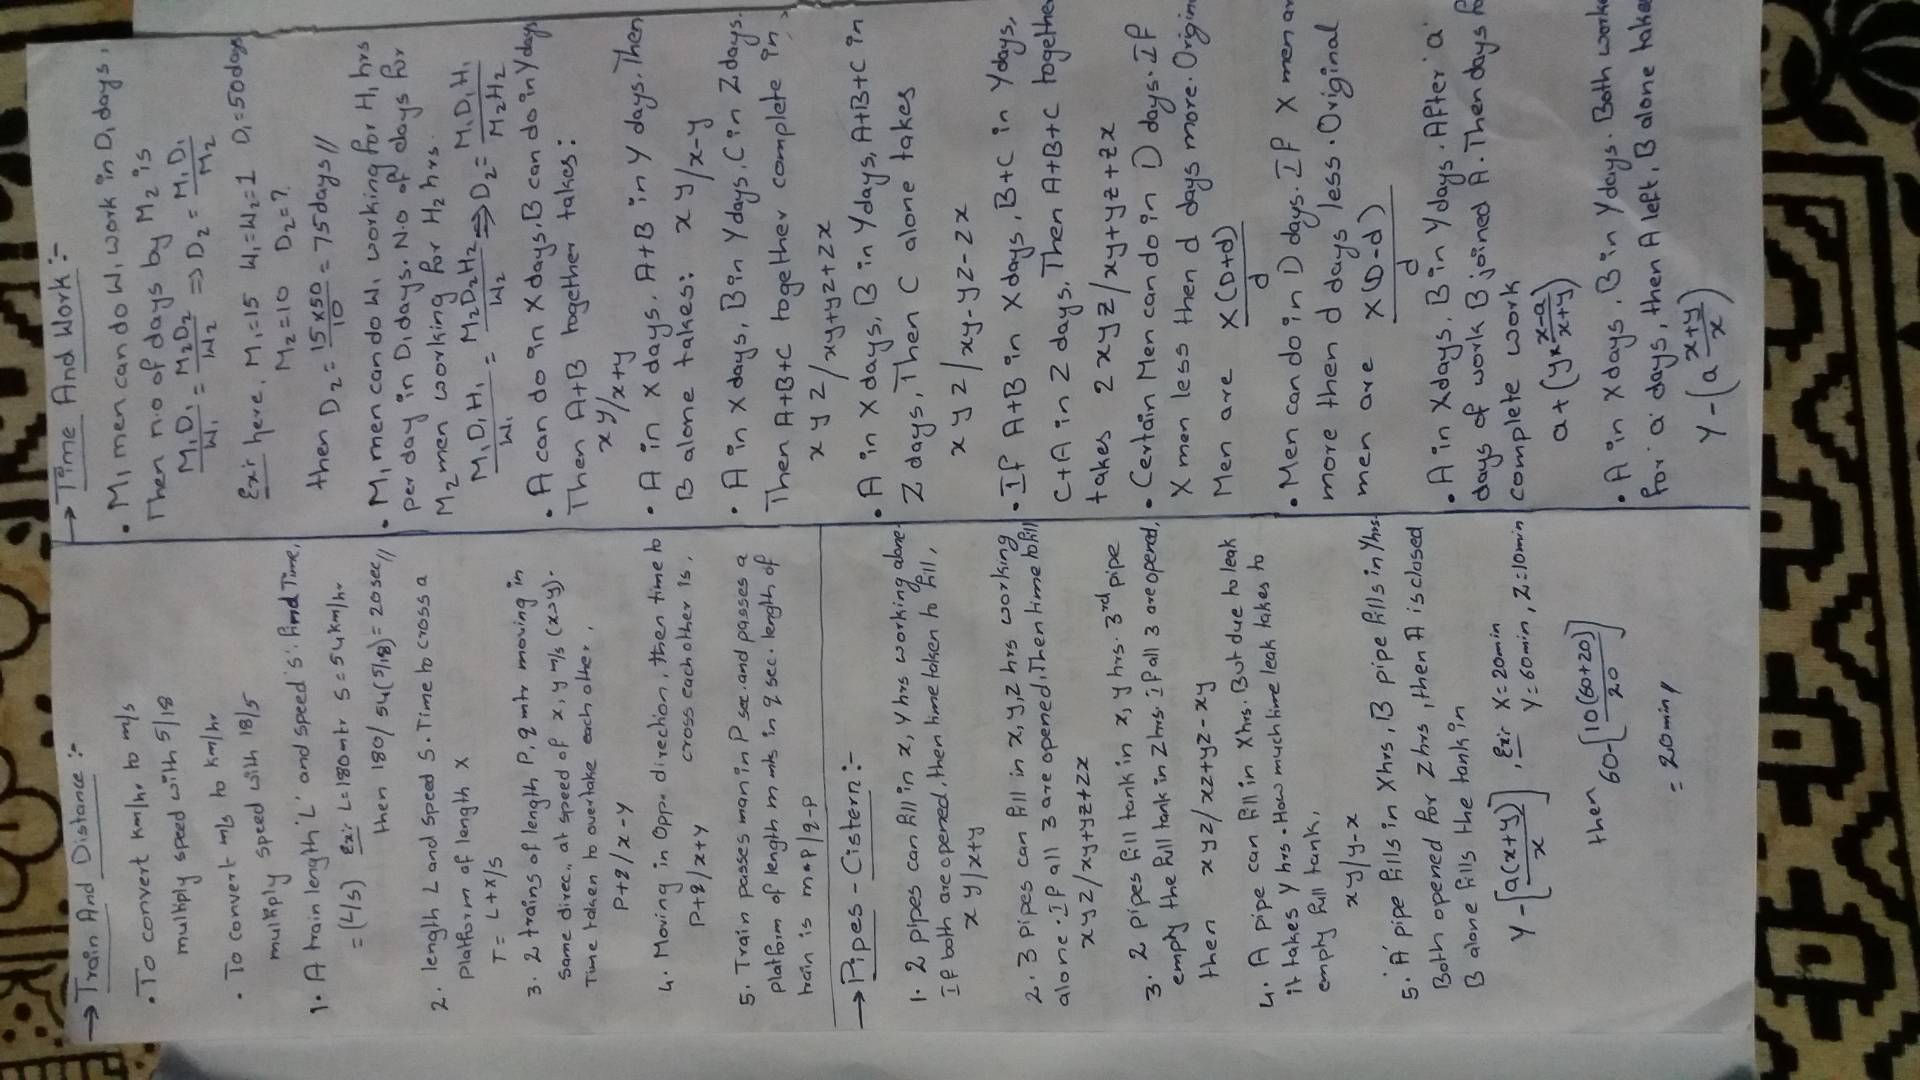 → Train And Distance :-
• To convert km/hr to m/s
multiply speed with 5/18
• To convert m/s to km/hr
multiply speed with 18/5
1. A train length 'L' and speed 's'. find Time,
= (L/s) Ex:- L=180mtr S=54km/hr
then 180/54(5/18) = 20sec//
2. length L and speed S. Time to cross a
platform of length X
T= L+x/s
3. 2 trains of length P, q mtr moving in
same direc., at speed of x, y m/s (x>y).
Time taken to overtake each other,
P+q/x-y
4. Moving in Opp. direction, then time to
P+q/x+y cross each other is,
5. Train passes man in P sec. and passes a
platform of length m mts in q sec. length of
train is m*p/q-p
→ Pipes - Cistern :-
1. 2 pipes can fill in x, y hrs working alone.
If both are opened, then time taken to fill,
xy/x+y
2. 3 pipes can fill in x, y, z hrs working
alone. If all 3 are opened, Then time to fill
xyz/xy+yz+zx
3. 2 pipes fill tank in x, y hrs. 3rd pipe
empty the full tank in z hrs. if all 3 are opened,
then xyz/xz+yz-xy
4. A pipe can fill in X hrs. But due to leak
it takes y hrs. How much time leak takes to
empty full tank,
xy/y-x
5. 'A' pipe fills in X hrs, B pipe fills in Y hrs.
Both opened for Z hrs, then A is closed
B alone fills the tank in
Y-[a(x+y)/x], Ex:- X=20min
Y=60min, Z=10min
then 60-[10(60+20)/20]
= 20min//
→ Time And Work :-
• M₁ men can do W₁ work in D₁ days,
Then n.o of days by M₂ is
M₁D₁/W₁ = M₂D₂/W₂ ⇒ D₂ = M₁D₁/M₂
Ex:- here, M₁=15 W₁=W₂=1 D₁=50days
M₂=10 D₂=?
then D₂ = 15x50/10 = 75days//
• M₁ men can do W₁ working for H₁ hrs
per day in D₁ days. N.o of days for
M₂ men working for H₂ hrs.
M₁D₁H₁/W₁ = M₂D₂H₂/W₂ ⇒ D₂ = M₁D₁H₁/M₂H₂
• A can do in X days, B can do in Y days
Then A+B together takes:
xy/x+y
• A in X days. A+B in Y days. Then
B alone takes: xy/x-y
• A in X days, B in Y days, C in Z days.
Then A+B+C together complete in,
xyz/xy+yz+zx
• A in X days, B in Y days, A+B+C in
Z days, Then C alone takes
xyz/xy-yz-zx
• If A+B in X days, B+C in Y days,
C+A in Z days, Then A+B+C togethe
takes 2xyz/xy+yz+zx
• Certain Men can do in D days. If
X men less then d days more. Origin
Men are X(D+d)/d
• Men can do in D days. If X men ar
more then d days less. Original
men are X(D-d)/d
• A in X days, B in Y days. After 'a'
days of work B joined A. Then days fo
complete work
a+(y*x-a/x+y)
• A in X days, B in Y days. Both worke
for 'a' days, then A left, B alone take
Y-(a x+y/x)